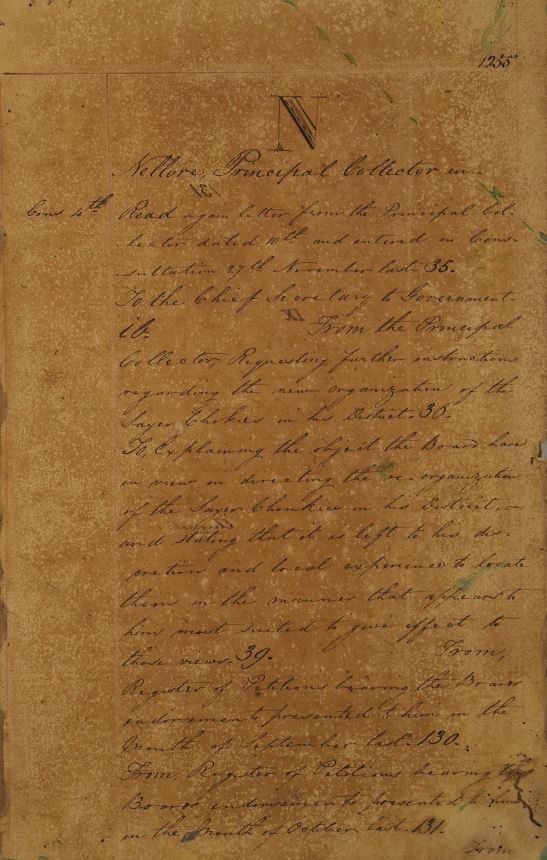 1255
N
Nellore, Principal Collector in
Cons 4th Read again letter from the Principal Col-
-lector dated 10th and entered in Cons-
-sultation 27th November last. 35.
To the Chief Secretary to Government.
ib. From the Principal
Collector, Requesting further instructions
regarding the new organization of the
Sayer Chokies in his District. 36.
To, Explaining the object the Board have
in view in directing the re-organization
of the Sayer Choukies in his District,
and stating that it is left to his dis-
-cretion and local experience to locate
them in the manner that appears to
him most suited to give effect to
those views. 39. From,
Register of Petitions bearing the Boards
endorsements, presented to him in the
Month of September last. 130.
From, Register of Petitions bearing the
Boards endorsements presented to him
in the Month of October last. 131.
From